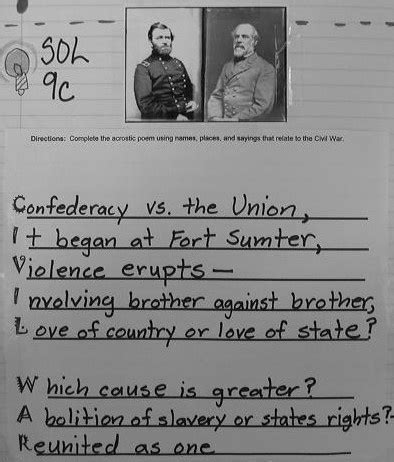 SOL
9c
Directions: Complete the acrostic poem using names, places, and sayings that relate to the Civil War.
Confederacy vs. the Union,
It began at Fort Sumter,
Violence erupts—
Involving brother against brother,
Love of country or love of state?
Which cause is greater?
Abolition of slavery or states rights?-
Reunited as one